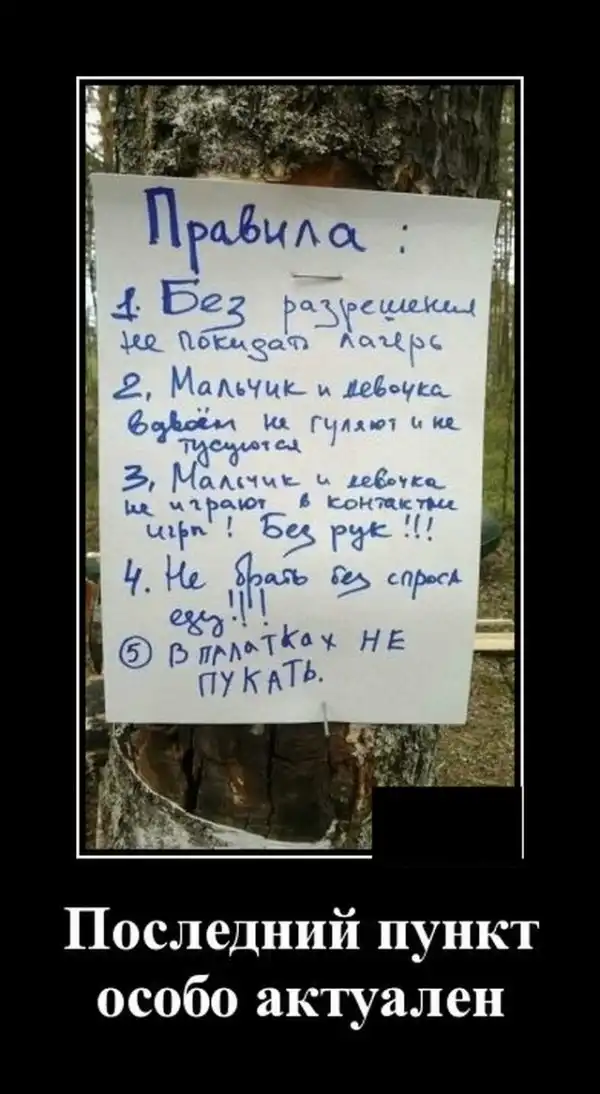 Правила :
1. Без разрешения
не покидать лагерь
2, Мальчик и девочка
вдвоём не гуляют и не
тусуются
3, Мальчик и девочка
не играют в контактные
игры ! Без рук !!!
4. Не брать без спроса
еду!!!!
5 В ПАЛАТКАХ НЕ
ПУКАТЬ.
Последний пункт
особо актуален